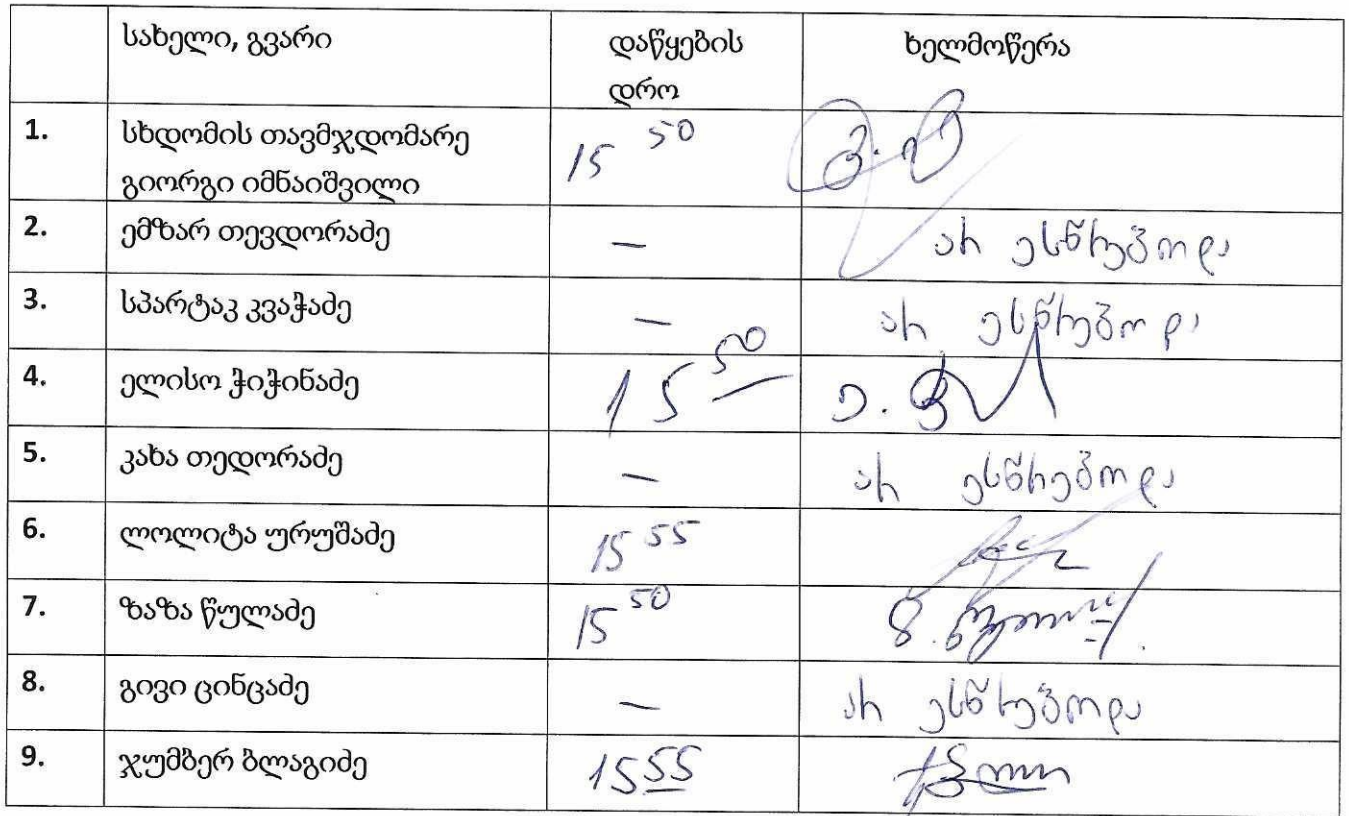 სახელი, გვარი დაწყების ხელმოწერა
დრო
1. სხდომის თავმჯდომარე 15 50
გიორგი იმნაიშვილი
2. ემზარ თევდორაძე — არ ესწრებოდა
3. სპარტაკ კვაჭაძე — არ ესწრებოდა
4. ელისო ჭიჭინაძე 15 50
5. კახა თედორაძე — არ ესწრებოდა
6. ლოლიტა ურუშაძე 15 55
7. ზაზა წულაძე 15 50
8. გივი ცინცაძე — არ ესწრებოდა
9. ჯუმბერ ბლაგიძე 15 55